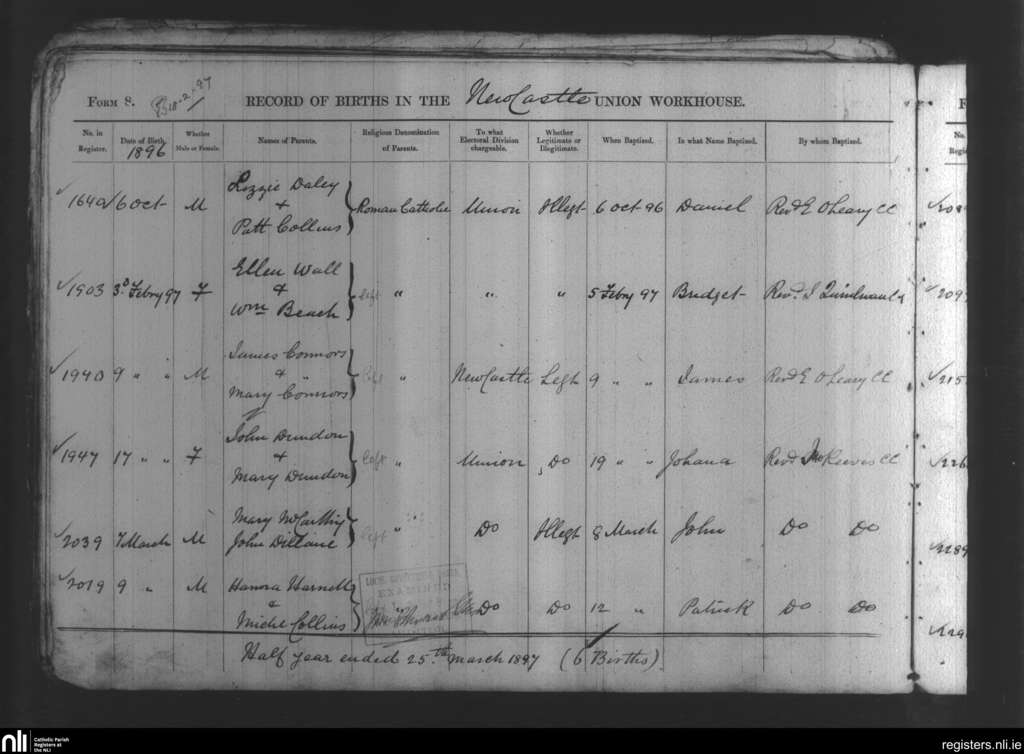 FORM 8. RECORD OF BIRTHS IN THE NewCastle UNION WORKHOUSE.
No. in Register. Date of Birth. 1896 Whether Male or Female. Names of Parents. Religious Denomination of Parents. To what Electoral Division chargeable. Whether Legitimate or Illegitimate. When Baptized. In what Name Baptized. By whom Baptized.
Lizzie Daley
1640 6 Oct M + Roman Catholic Union Illegt 6 Oct 96 Daniel Revd E OLeary CC
Patt Collins
Ellen Wall
1903 3d Febry 97 F & left " " " 5 Febry 97 Bridget Revd
Wm Beach
James Connors
1940 9 " " M & left " NewCastle Legt 9 " " James Revd E OLeary CC
Mary Connors
John Dundon
1947 17 " " F & left " Union Do 19 " " Johana Revd Jno Reeves CC
Mary Dundon
Mary McCarthy
2039 7 March M left " Do Illegt 8 March John Do Do
John Dillane
2019 9 " M Hanora Harnett
& Do Do 12 " Patrick Do Do
Miche Collins
EXAMINED
Half year ended 25th March 1897 (6 Births)
nli Catholic Parish Registers at the NLI
registers.nli.ie